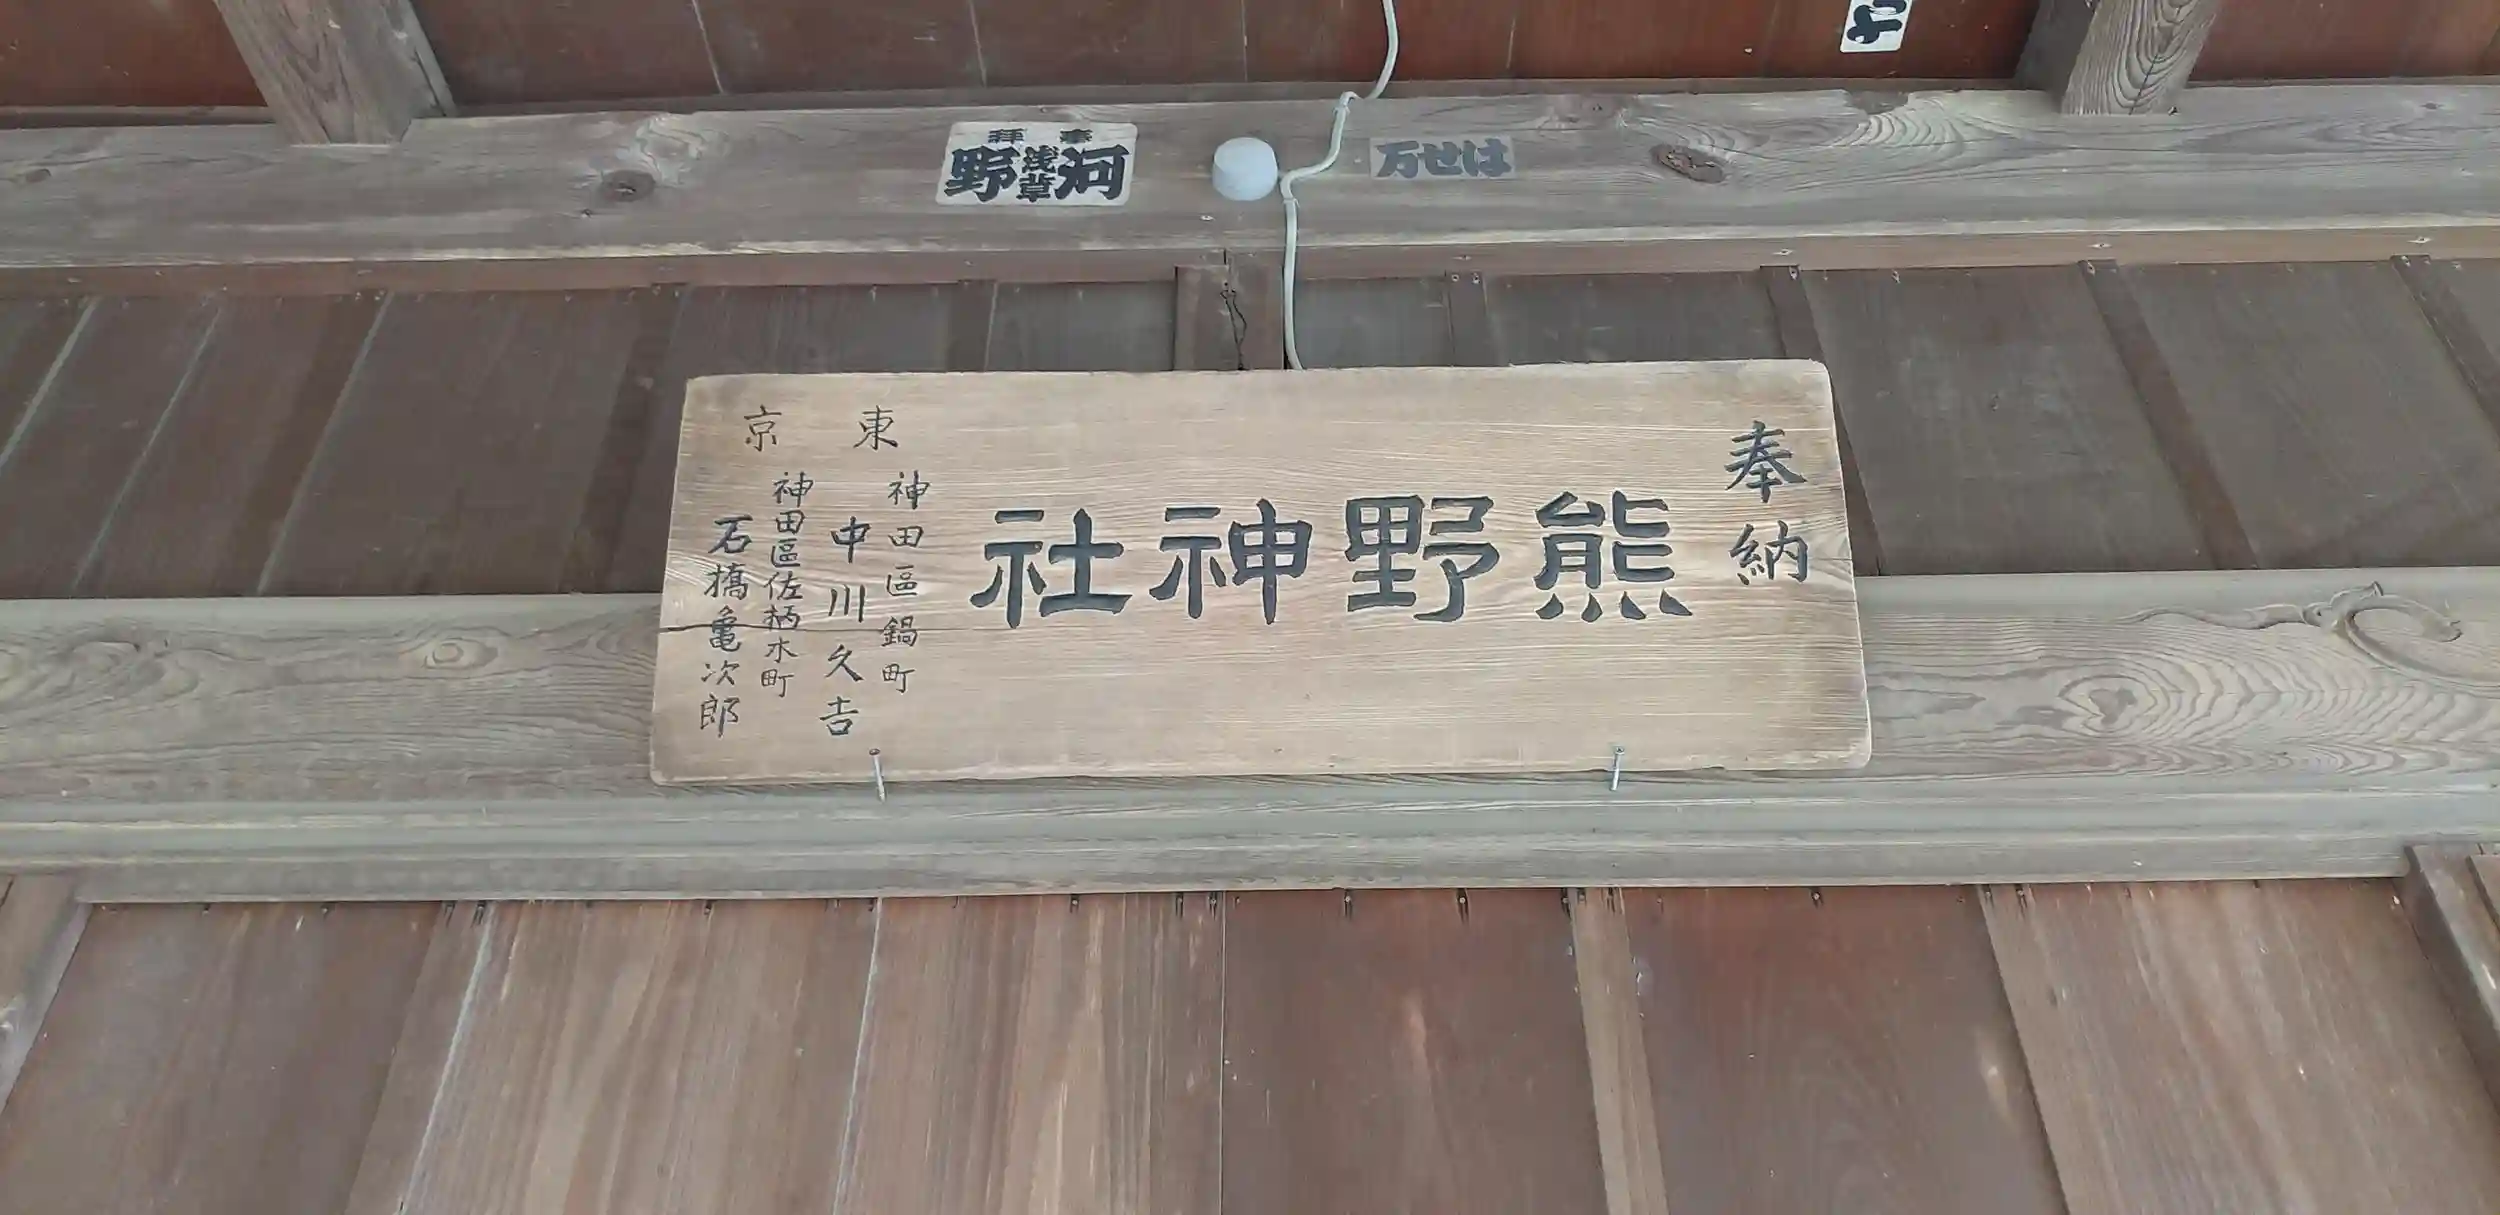 奉拝
浅草
河野
万せは
奉納
熊野神社
東京
神田區鍋町
中川久吉
神田區佐柄木町
石橋亀次郎